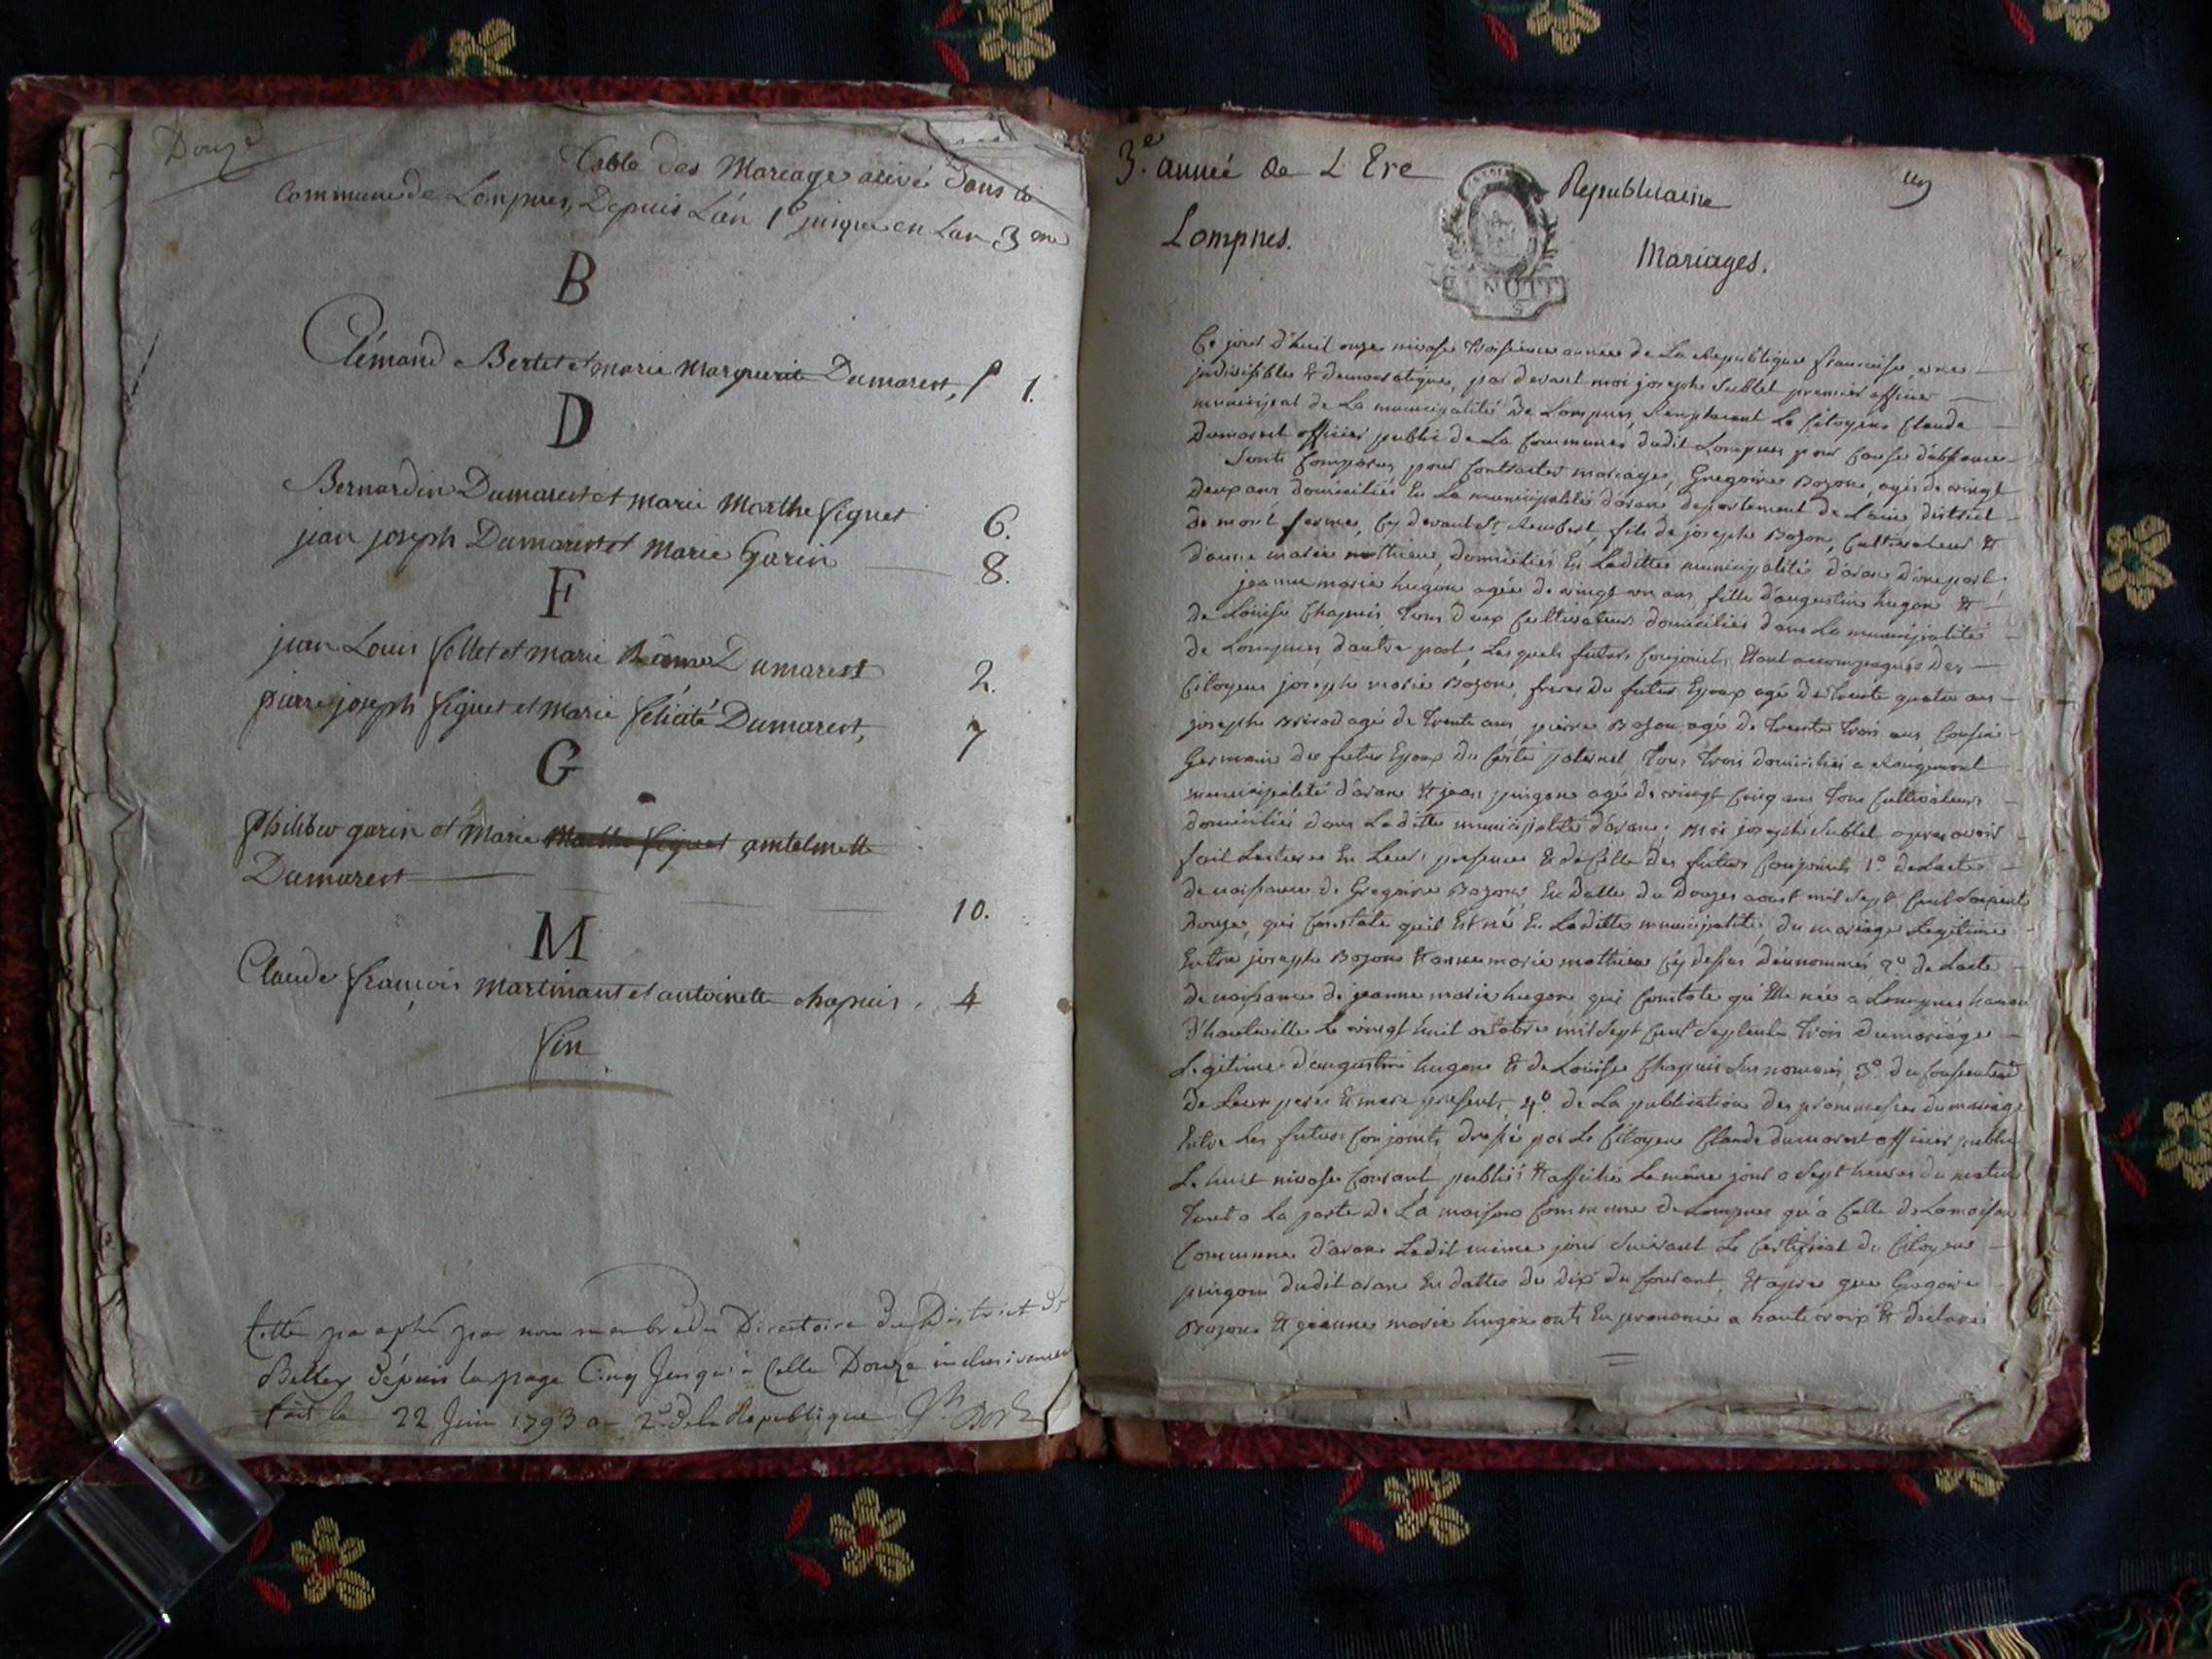 Douze
Table des Mariage arivé dans la
Commune de Lompnes, Depuis L'an 1e jusque en Lan 3me
B
Clémand Bertet et marie marguerite Dumarest, f 1.
D
Bernardin Dumarest et marie Marthe figuet 6.
jean joseph Dumarest et Marie Garin 8.
F
jean Louis follet et marie Dumarest 2.
pierre joseph figuet et Marie félicité Dumarest, 7
G
Philiber garin et Marie Marthe figuet antelmette
Dumarest
10.
M
Claude françois Martinant et antoinette chapuis. 4
fin
Cotté paraphé par nous membre du Directoire du District de
Belley Dépuis la page Cinq Jusqu'à Celle Douze inclusivement
fait le 22 Juin 1793 an 2e de la Republique
3e année de L'Ere Republicaine
un
Lompnes.
Mariages.
Ce jour d'huit onze nivose troisieme année de La Republique francaise, une
indivisible & democratique, par devant moi joseph Sublet premier officier
municipal de La municipalité de Lompnes, Remplacant Le Citoyen Claude
Dumarest officier public de La Commune dudit Lompnes pour Cause d'absence
Sont Comparus pour Contracter mariage, Gregoire Bozon, agé de vingt
Deux ans domicilié En La municipalité d'aranc departement de Lain, district
de mont ferme, Cy devant St Rembert, fils de joseph Bozon, Cultivateur &
d'anne marie mathieu, domiciliés En Laditte municipalité d'aranc d'une part;
jeanne marie hugon agée de vingt un ans, fille d'augustin hugon &
de Louise Chapuis, Tous deux Cultivateurs domiciliés dans La municipalité
de Lompnes, d'autre part; Lesquels futurs Conjoints Etant accompagnés Des
Citoyens joseph marie Bozon, frere du futur Epoux agé de trente quatre ans
joseph agé de trente ans, pierre Bozon agé de trente trois ans, Cousin
Germain du futur Epoux du Costé paternel, Tous trois domiciliés a Rougemont
municipalité d'aranc & jean pingon agé de vingt Cinq ans Tous Cultivateurs
domiciliés dans Laditte municipalité d'aranc; Moi joseph Sublet apres avoir
fait Lecture En Leur presence & de Celle des futurs Conjoints 1o. de Lacte
de naissance de Gregoire Bozon, En Datte du Douze aoust mil Sept Cent Soixante
Douze, qui Constate quil Est né En Laditte municipalité, du mariage Legitime
Entre joseph Bozon & anne marie mathieu Cy dessus dénommés 2o. de Lacte
de naissance de jeanne marie hugon qui Constate qu'Elle née a Lompnes hameau
d'hauteville Le vingt huit octobre mil Sept Cent Septante Trois du mariage
Legitime d'augustin hugon & de Louise Chapuis Surnommés, 3o. du Consentement
de Leur peres & mere presents, 4o. de La publication des promesses du mariage
Entre Les futurs Conjoints, dressé par Le Citoyen Claude dumarest officier public
Le huit nivose Courant publié & affiché Le même jour a Sept heures du matin
Tant a La porte de La maison Commune de Lompnes qu'a Celle de La maison
Commune d'aranc Ledit même jour Suivant Le Certificat du Citoyen
pingon dudit aranc En datte du dix du Courant, Et apres que Gregoire
Bozon & jeanne marie hugon ont Eu prononcé a haute voix & déclaré